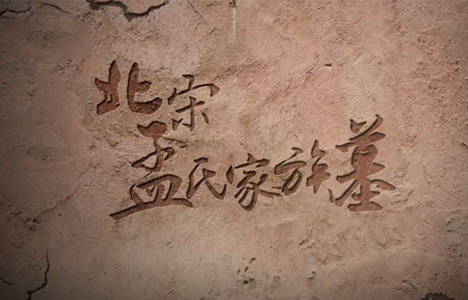 北宋
孟氏家族墓